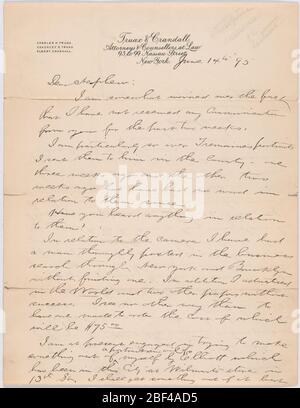 CHARLES H. TRUAX.
CHAUNCEY S. TRUAX
ALBERT CRANDALL
Truax & Crandall,
Attorneys & Counsellors at Law
95 to 99 Nassau Street
New York. June 14th 93
Dear Nephew:
I am somewhat worried over the fact
that I have not received any Communication
from you for the past two weeks.
I am particularly so over
I sent them to him in the Country - one
three weeks ago and the other two
weeks ago and have no word in
relation to them since.
Have you heard anything in relation
to them?
In relation to the Camera I have had
a man thoroughly posted in the business
search through New York and Brooklyn
without finding one. In addition I advertised
in the World and two other papers without
success. I see no other way than to
have one made to vote the Cost of which
will be $75.00
I am at present engaged in trying to make
something out of myself & Elliott which
has been in this City at
13th St. I shall get something out of it but
alamy
Image ID: 2BF4AD5
www.alamy.com